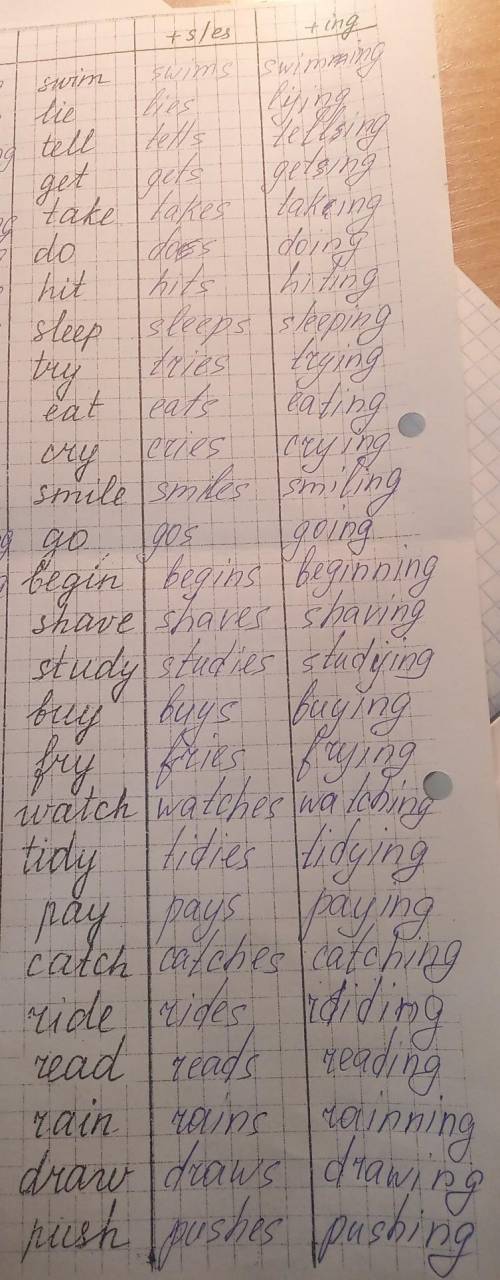 +s/es +ing
swim swims swimming
lie lies lying
tell tells tellsing
get gets getsing
take takes takeing
do does doing
hit hits hiting
sleep sleeps sleeping
try tries trying
eat eats eating
cry cries crying
smile smiles smiling
go gos going
begin begins beginning
shave shaves shaving
study studies studying
buy buys buying
fry fries frying
watch watches watching
tidy tidies tidying
pay pays paying
catch catches catching
ride rides rdiding
read reads reading
rain rains rainning
draw draws drawing
push pushes pushing